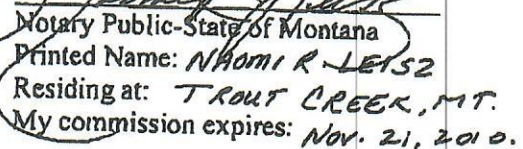 Notary Public-State of Montana
Printed Name: NAOMI R LEISZ
Residing at: TROUT CREEK, MT.
My commission expires: NOV. 21, 2010.